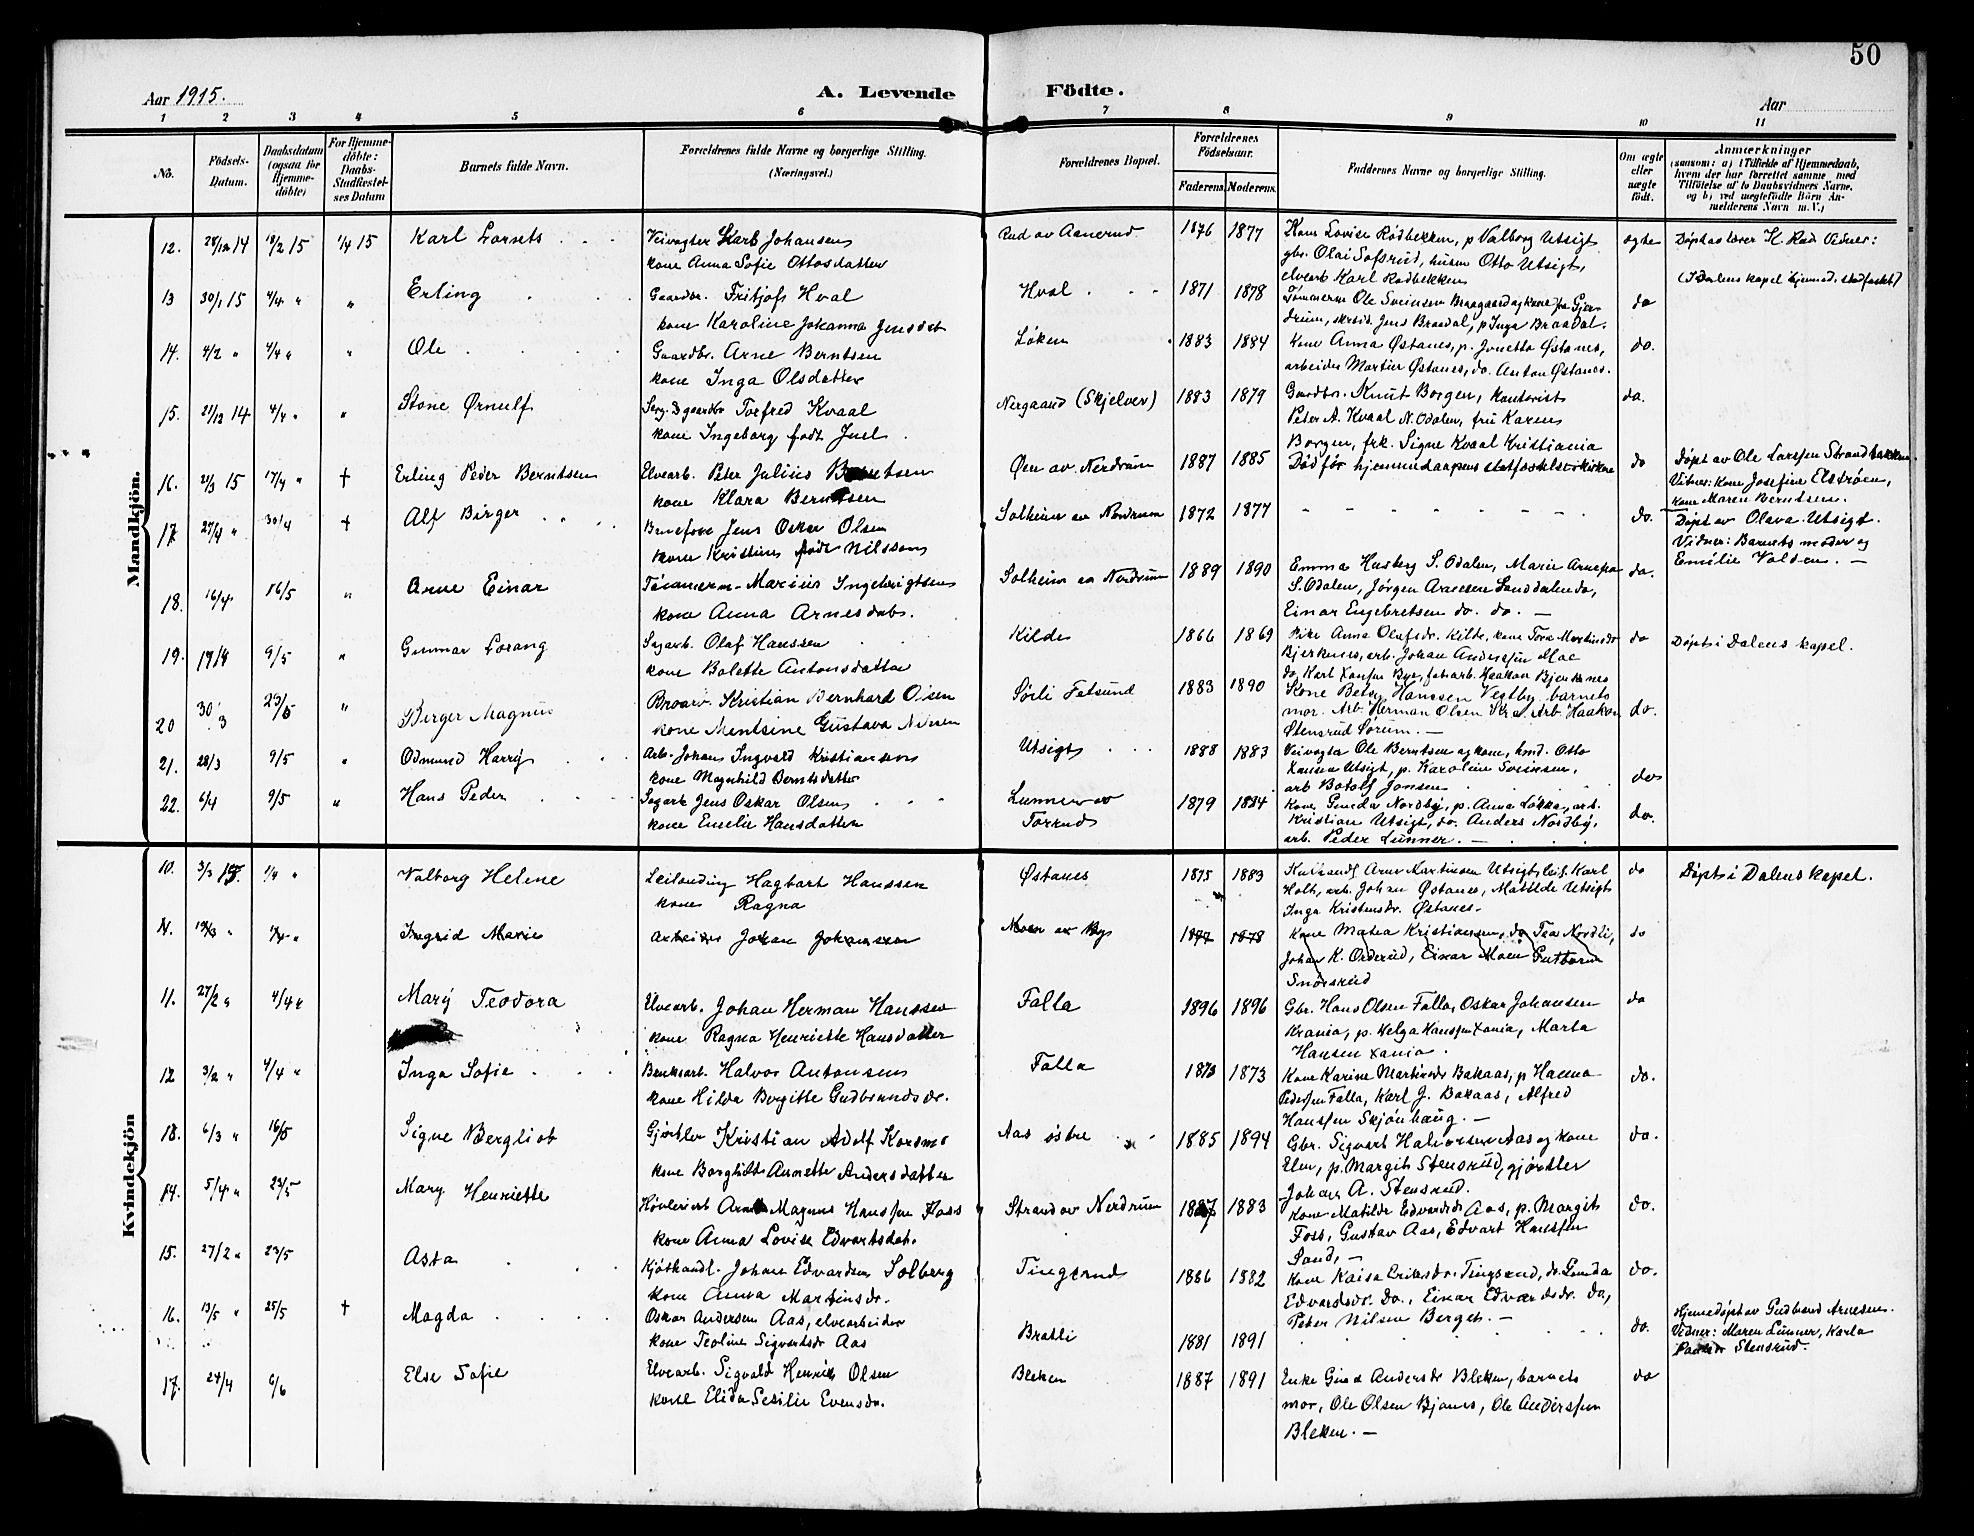 50
Aar 1915.
A. Levende Födte.
Aar
1 2 3 4 5 6 7 8 9 10 11
No.
Födsels-Datum.
Daabsdatum (ogsaa for Hjemme-döbte)
For Hjemme-döbte: Daabs-Stadfæstel-ses Datum
Barnets fulde Navn.
Forældrenes fulde Navne og borgerlige Stilling. (Næringsvei.)
Forældrenes Bopæl.
Forældrenes Födselsaar.
Faderens. Moderens.
Faddernes Navne og borgerlige Stilling.
Om ægte eller uægte födt.
Anmærkninger
(saasom: a) i Tilfælde af Hjemmedaab,
hvem der har forrettet samme, med
Tilföielse af to Daabsvidners Navne,
og b) ved uægtefödte Börn An-
melderens Navn m. V.)
Mandkjön.
12. 28/12 14 18/2 15 1/4 15 Karl
Veivogter Karl Johansen
kone Anna Sofie Ottosdatter
Rud av Aanerud 1876 1877
Kone Lovise Rødbekken, p Valborg Utsigt
gbr. Olai Sofsrud, husm Otto Utsigt,
elvearb Karl Rødbekken
ægte
Døpt av lærer
(I Dalens kapel hjemmed. stadfæstet)
13 30/1 15 4/4 " " Erling
Gaardbr. Fritjof Hval
kone Karoline Johanna Jensdat
Hval 1871 1878
Tømmerm Ole Svensen Braagaard og kone fra Gjer-
drum, Jens Braadal, p Inga Braadal.
do
14. 4/2 " 4/4 " " Ole
Gaardbr. Arne Berntsen
kone Inga Olsdatter
Løken 1883 1884
Kone Anna Østanes, p. Jonette Østanes,
arbeider Martin Østanes, do. Anton Østanes.
do.
15. 21/12 14 4/4 " " Stone Ørnulf
Serg. & gaardbr Torfred Kvaal
kone Ingeborg født Juel
Nergaard (Skjelver) 1883 1879
Gaardbr. Knut Borgen, kontorist
Peter A. Kvaal N. Odalen, fru Karen
Borgen, frk. Signe Kvaal Kristiania
do.
16. 21/3 15 17/4 " † Erling Peder Berntsen
Elvearb. Peter Julius Berntsen
kone Klara Berntsen
Øen av Nerdrum 1887 1885
Død før hjemmedaapens statfæstelse i kirken
do
Døpt av Ole Larssen Strandbakken
Vitner: kone Josefine Elstrøen,
kone Maren Berntsen.
17. 27/4 " 30/4 † Alf Birger
Jens Oskar Olsen
kone Kristine født Nilssen
Solheim av Nerdrum 1872 1877
do.
Døpt av Olava Utsigt.
Vidner: Barnets moder og
Emilie Volden. —
18. 16/4 16/5 " Arne Einar
Tømmerm. Marius Ingebrigtsen
kone Anna Arnesdatr.
Solheim av Nerdrum 1889 1890
Emma Husberg S. Odalen, Marie Arnesen
S. Odalen, Jørgen Arnesen Sanddalen do,
Einar Engebretsen do. do. —
do.
19. 19/4 9/5 " Gunnar Lorang
Sagarb. Olaf Hanssen
kone Bolette Antonsdatter
Kilde 1866 1869
Pike Anna Olafsdr. Kilde, kone Tora Martinsdr
Bjerknes, arb. Johan Anderssen Moe
do, Karl Hansen Bye, fabarb. Haakon Bjerknes
do
Døpt i Dalens kapel.
20 30/3 23/5 " Berger Magnus
Kristian Bernhard Olsen
kone Mentsine Gustava
Sørli Fetsund 1883 1890
Kone Betsy Hanssen Vestby, barnets
mor. Arb Herman Olsen Kra. Arb Haakon
Stensrud Sørum. —
do.
21. 28/3 9/5 " Odmund Harry
Arb. Johan Ingvald Kristiansen
kone Magnhild Berntsdatter
Utsigt 1888 1883
Veivogter Ole Berntsen og kone, hmd. Otto
Hansen Utsigt, p. Karoline Svensen,
arb Botolf Jonsen
do
22. 6/4 9/5 " Hans Peder
Sagarb Jens Oskar Olsen
kone Emelie Hansdatter
Lunner av Torrud 1879 1884
Kone Gunda Nordby, p. Anna Løkka, arb.
Kristian Utsigt, do. Anders Nordby,
arb. Peder Lunner. —
do.
Kvindekjön
10. 3/3 15. 1/4 " Valborg Helene
Leilending Hagbart Hanssen
kone Ragna
Østanes 1875 1883
Arne Martinsen Utsigt, Karl
Holt, arb. Johan Østanes, Matilde Utsigt
Inga Kristensdr. Østanes.
do
Døpt i Dalens kapel.
11. 19/3 " Ingrid Marie
Arbeider Johan Johanssen
Moen av By 1877 1878
Kone Matea Kristiansen, do Tea Nordli,
Johan K. Orderud, Einar Moen Guttorm
Snorsrud
do
11. 27/2 " 4/4 " Mary Teodora
Elvearb. Johan Herman Hanssen
kone Ragna Henriette Hansdatter
Falla 1896 1896
Gbr. Hans Olsen Falla, Oskar Johansen
Krania, p. Helga Hanssen Xania, Marta
Hansen Xania.
do
12 3/2 " 4/4 " Inga Sofie
Halvor Antonsen
kone Hilda Birgitte Gudbrandsdr.
Falla 1873 1873
Kone Karine Martinsdr Bakaas, p Hanna
Pederssen Falla, Karl J. Bakaas, Alfred
Hanssen Skjønhaug. —
do.
13. 6/3 " 16/5 Signe Bergliot
Gjørtler Kristian Adolf Korsmo
kone Borghild Annette Andersdatter
Aas østre 1885 1894
Gbr. Sigvart Halvorsen Aas og kone
Elen, p. Margit Stensrud, gjørtler
Johan A. Stensrud.
do.
14. 5/4 " 24/5 Mary Henriette
Høvleriarb Arne Magnus Hanssen Foss
kone Anna Lovise Edvartsdat.
Strand av Nerdrum 1887 1883
Kone Matilde Edvardsdr Aas, p. Margit
Foss, Gustav Aas, Edvart Hanssen
Sand, —
do.
15. 27/2 " 23/5 Asta
Kjøthandl. Johan Edvardsen Solberg
kone Anna Martinsdr.
Tingsrud 1886 1882
Kone Kaisa Eriksdr. Tingsrud, do. Gunda
Edvardsdr. do., Einar Edvardsdr. do,
Peter Nilsen Berget. —
do.
16. 13/5 " 25/5 † Magda
Oskar Andersen Aas, elvearbeider
kone Teoline Sigvartsdr Aas
Bratli 1881 1891
do.
Hjemedøpt av Gudbrand Arnesen.
Vidner: Maren Lunner, Karla
Stensrud.
17. 24/4 6/6 Else Sofie
Elvearb. Sigvald Henrik Olsen
kone Elida Sesilie Evensdr.
Bleken 1887 1891
Enke Gina Andersdr Bleken, barnets
mor, Ole Olsen Bjanes, Ole Anderssen
Bleken. —
do